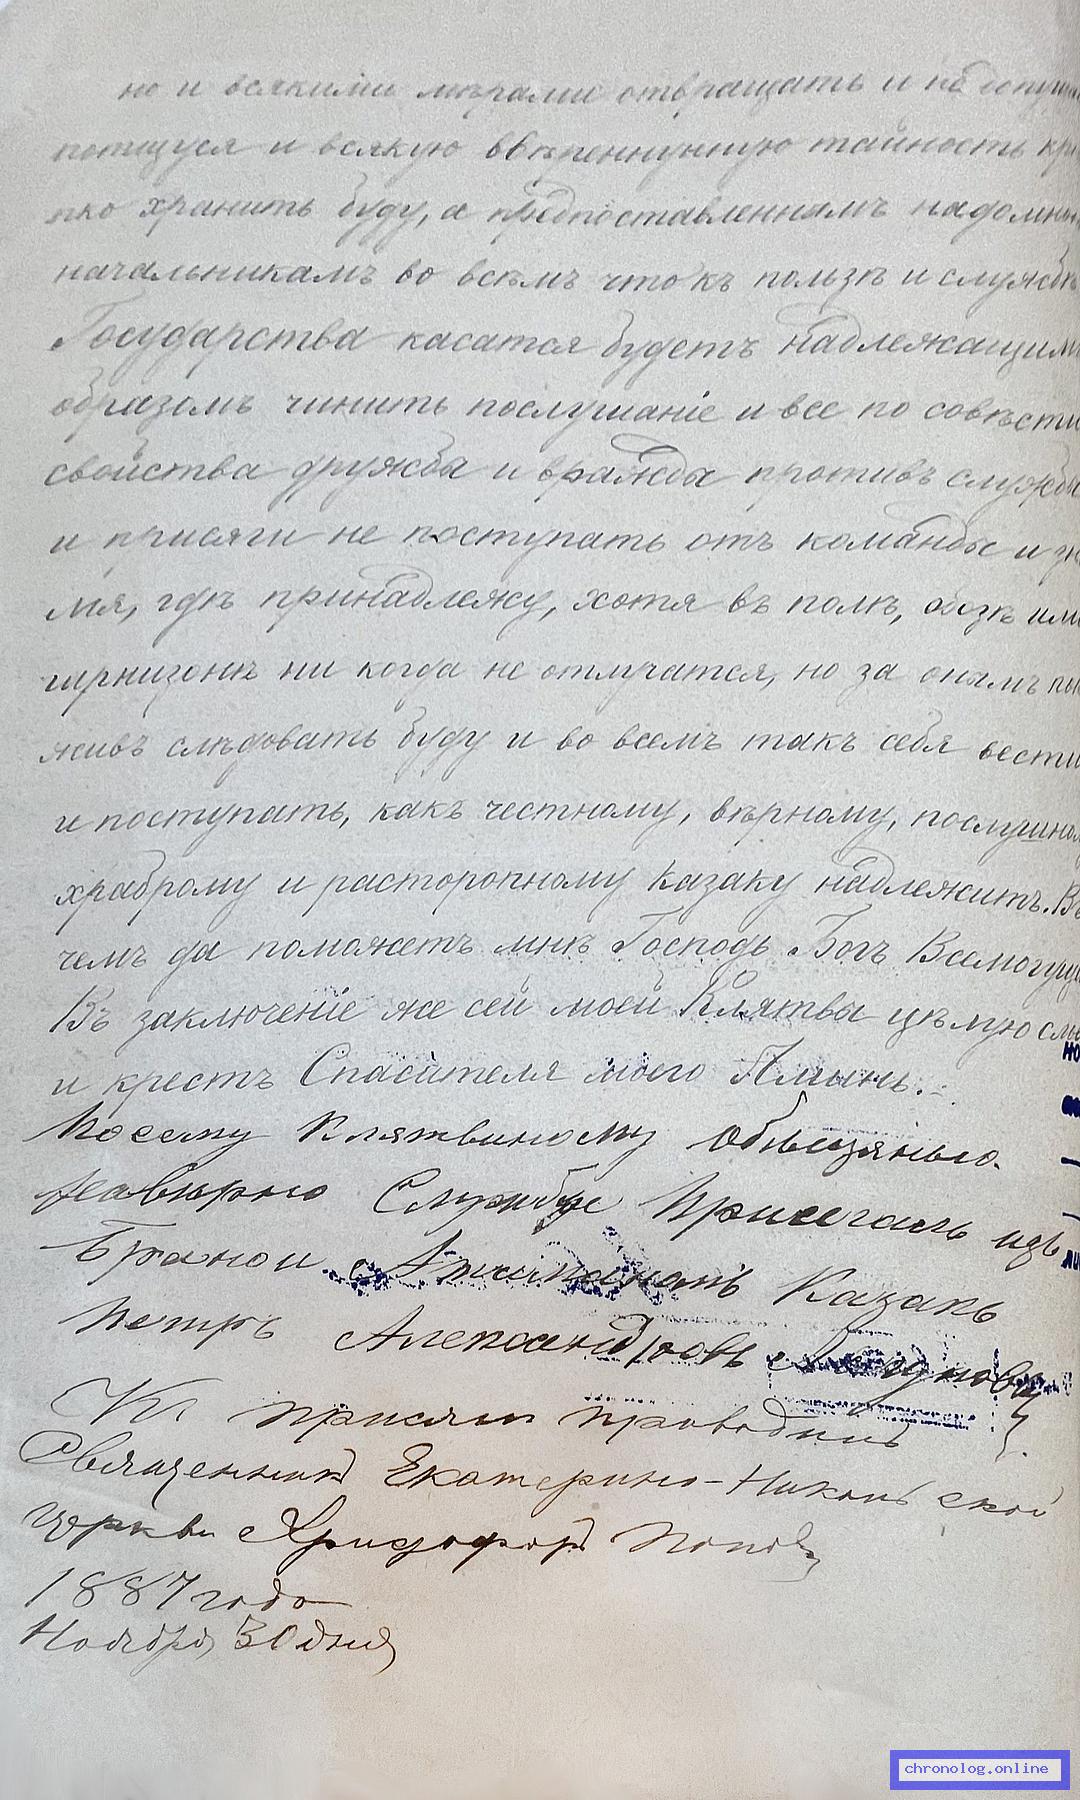 но и всякими мѣрами отвращать и не допущ
потщуся и всякую ввѣренную тайность крѣ
пко хранить буду, а предпоставленнымъ надомною
начальникамъ во всѣмъ что къ пользѣ и службѣ
Государства касатся будетъ надлежащимъ
образомъ чинить послушаніе и все по совѣсти
свойства дружбы и вражды противъ службы
и присяги не поступать отъ команды и зна
мя, гдѣ принадлежу, хотя въ полѣ, обозѣ или
гарнизонѣ ни когда не отлучатся, но за онымъ по
живъ слѣдовать буду и во всемъ такъ себя вести
и поступать, какъ честному, вѣрному, послушному
храброму и расторопному казаку надлежитъ. Въ
чемъ да поможетъ мнѣ Господь Богъ Всемогущ
Въ заключеніе же сей моей Клятвы цѣлую сло
и крестъ Спасителя моего Аминь.
Посему Клятвиному Обищянью
Службе Присегалъ изъ
Казакъ
Петръ Александровъ
Къ присяги приводилъ
Священникъ Екатерино-Никольской
Церкви Хрисофоръ Поповъ
1887 года
Ноября 30 дня
chronolog.online